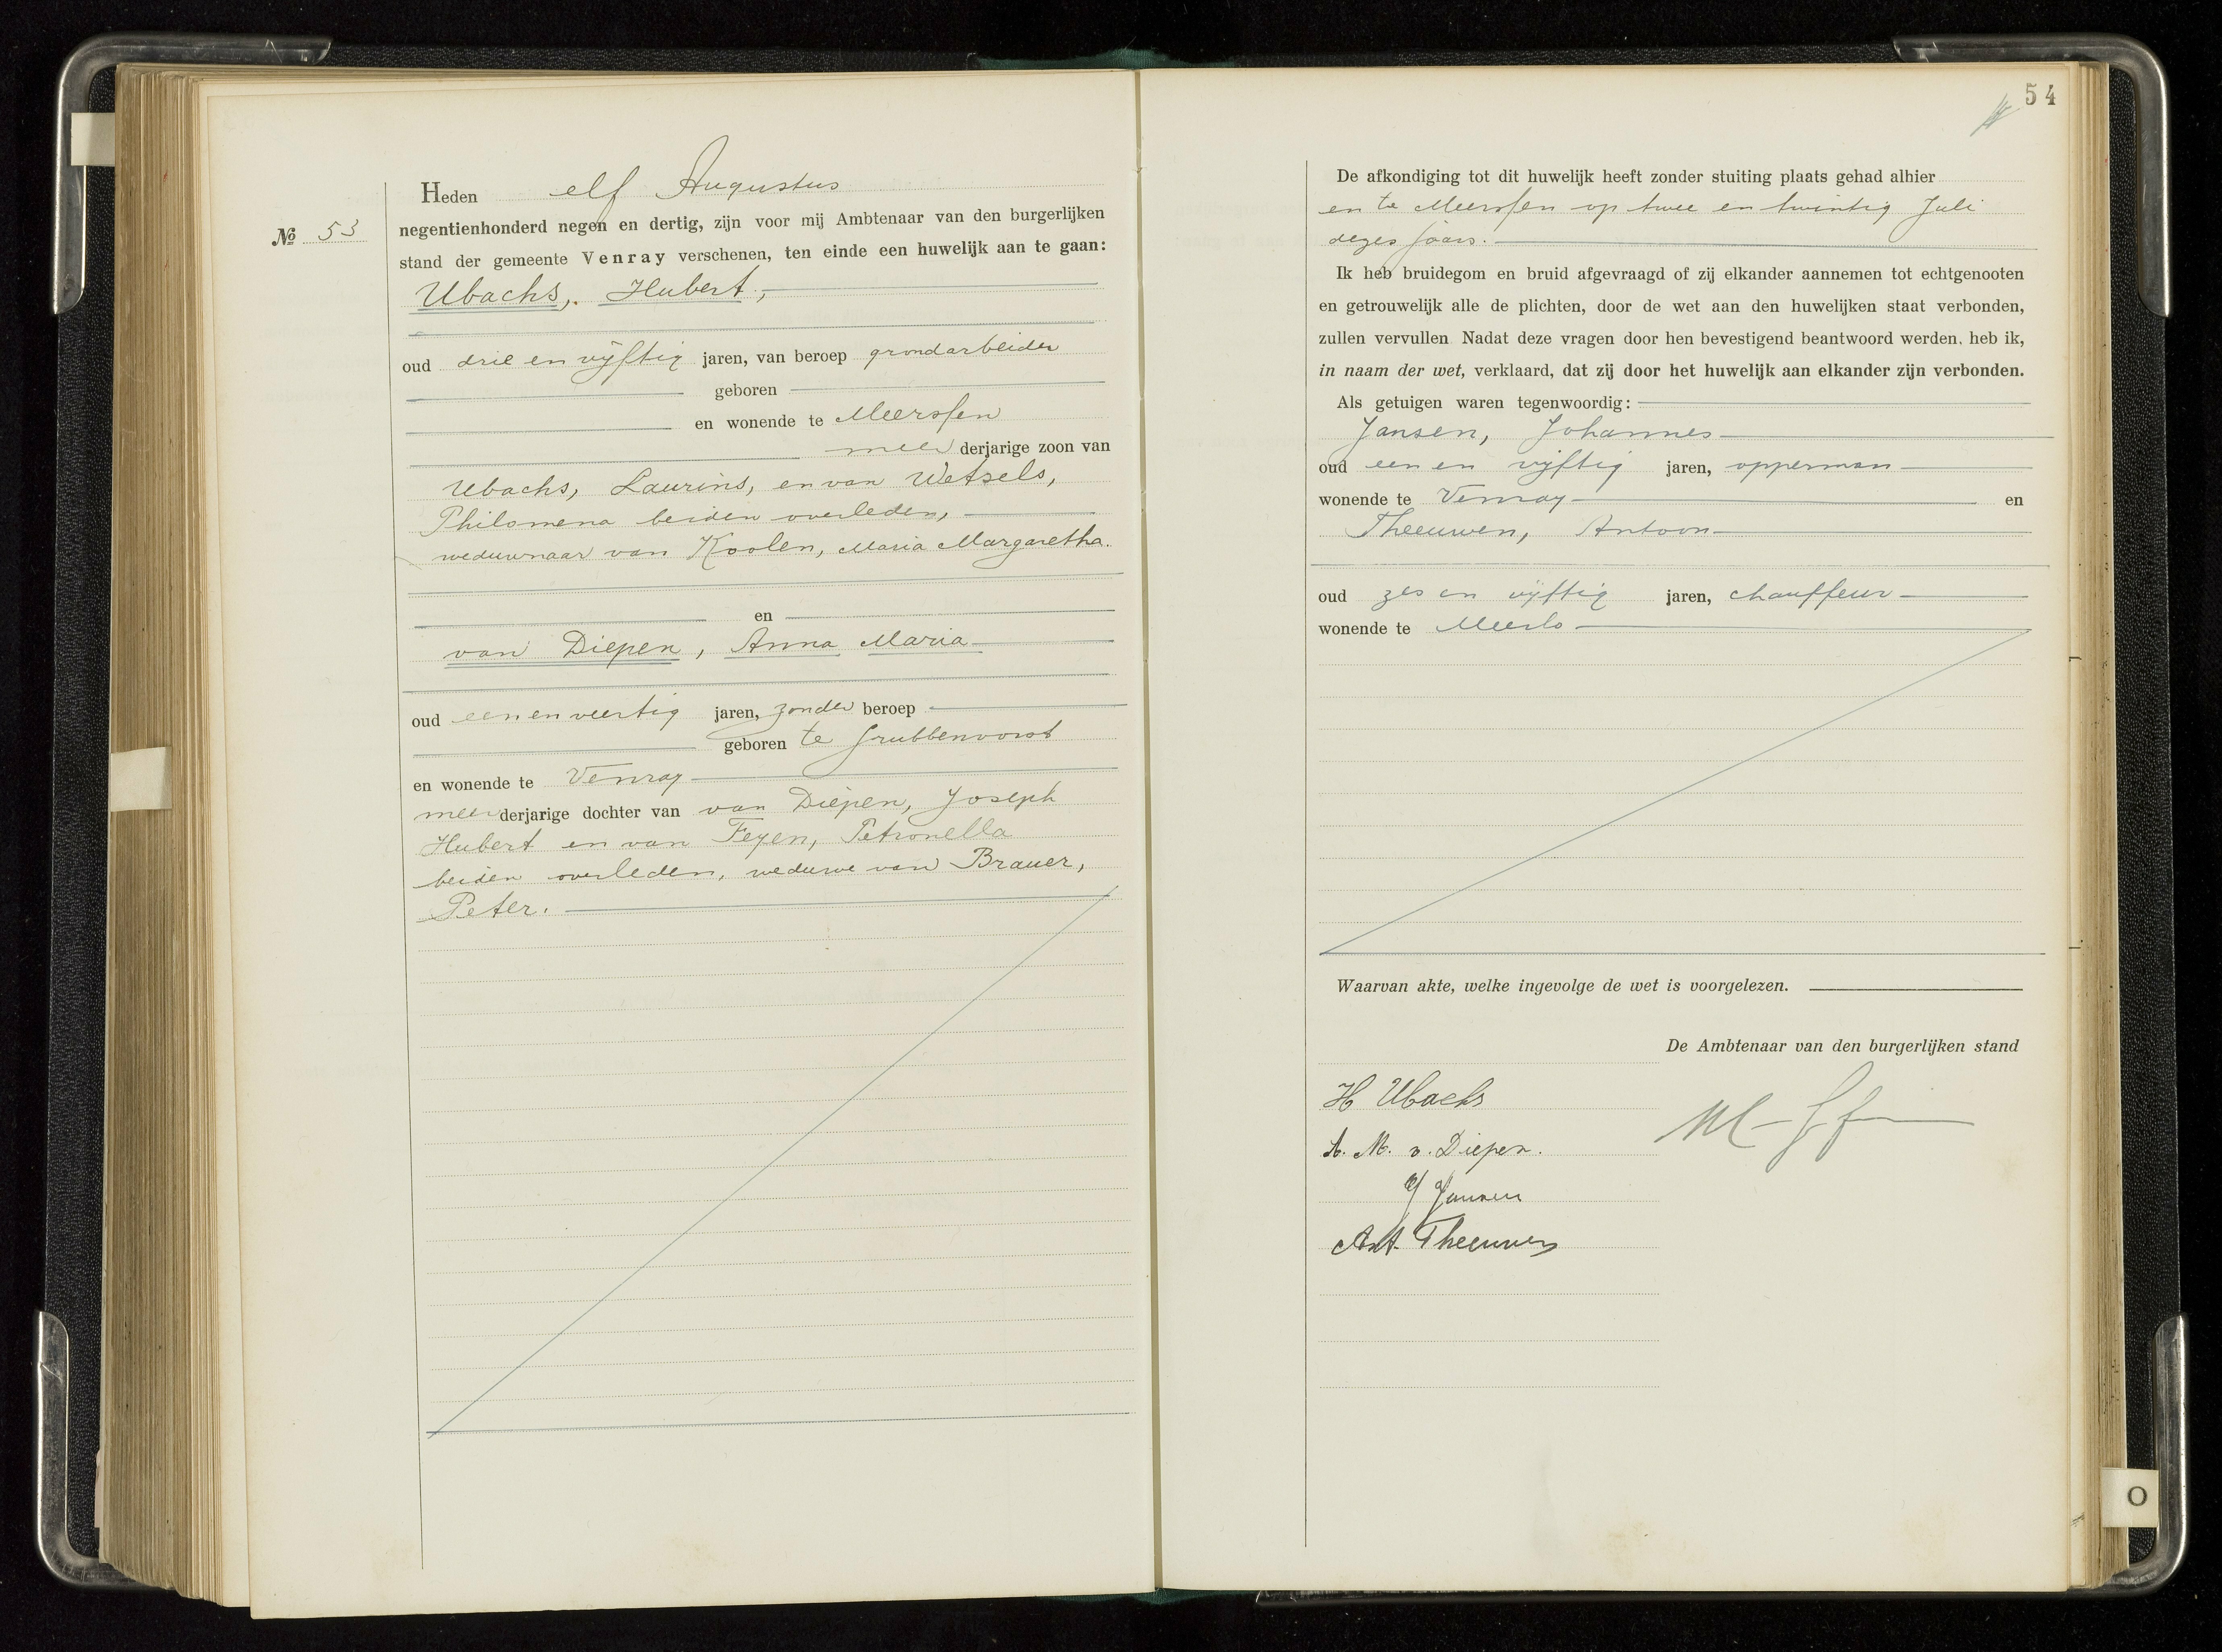 Heden elf Augustus
No 53
negentienhonderd negen en dertig, zijn voor mij Ambtenaar van den burgerlijken
stand der gemeente Venray verschenen, ten einde een huwelijk aan te gaan:
Ubachs, Hubert,
oud drie en vijftig jaren, van beroep grondarbeider
geboren
en wonende te Meerssen
meer derjarige zoon van
Ubachs, Laurins, en van Wetzels,
Philomena beiden overleden,
weduwnaar van Koolen, Maria Margaretha.
en
van Diepen, Anna Maria
oud een en veertig jaren, zonder beroep
geboren te Grubbenvorst
en wonende te Venray
meer derjarige dochter van van Diepen, Joseph
Hubert en van Feyen, Petronella
beiden overleden, weduwe van Brauer,
Peter.
54
De afkondiging tot dit huwelijk heeft zonder stuiting plaats gehad alhier
en te Meerssen op twee en twintig Juli
dezes jaars.
Ik heb bruidegom en bruid afgevraagd of zij elkander aannemen tot echtgenooten
en getrouwelijk alle de plichten, door de wet aan den huwelijken staat verbonden,
zullen vervullen. Nadat deze vragen door hen bevestigend beantwoord werden, heb ik,
in naam der wet, verklaard, dat zij door het huwelijk aan elkander zijn verbonden.
Als getuigen waren tegenwoordig:
Jansen, Johannes
oud een en vijftig jaren, opperman
wonende te Venray en
Theeuwen, Antoon
oud zes en vijftig jaren, chauffeur
wonende te Meerlo
Waarvan akte, welke ingevolge de wet is voorgelezen.
De Ambtenaar van den burgerlijken stand
H Ubachs
A. M. v. Diepen.
J Jansen
Ant. Theeuwen
O